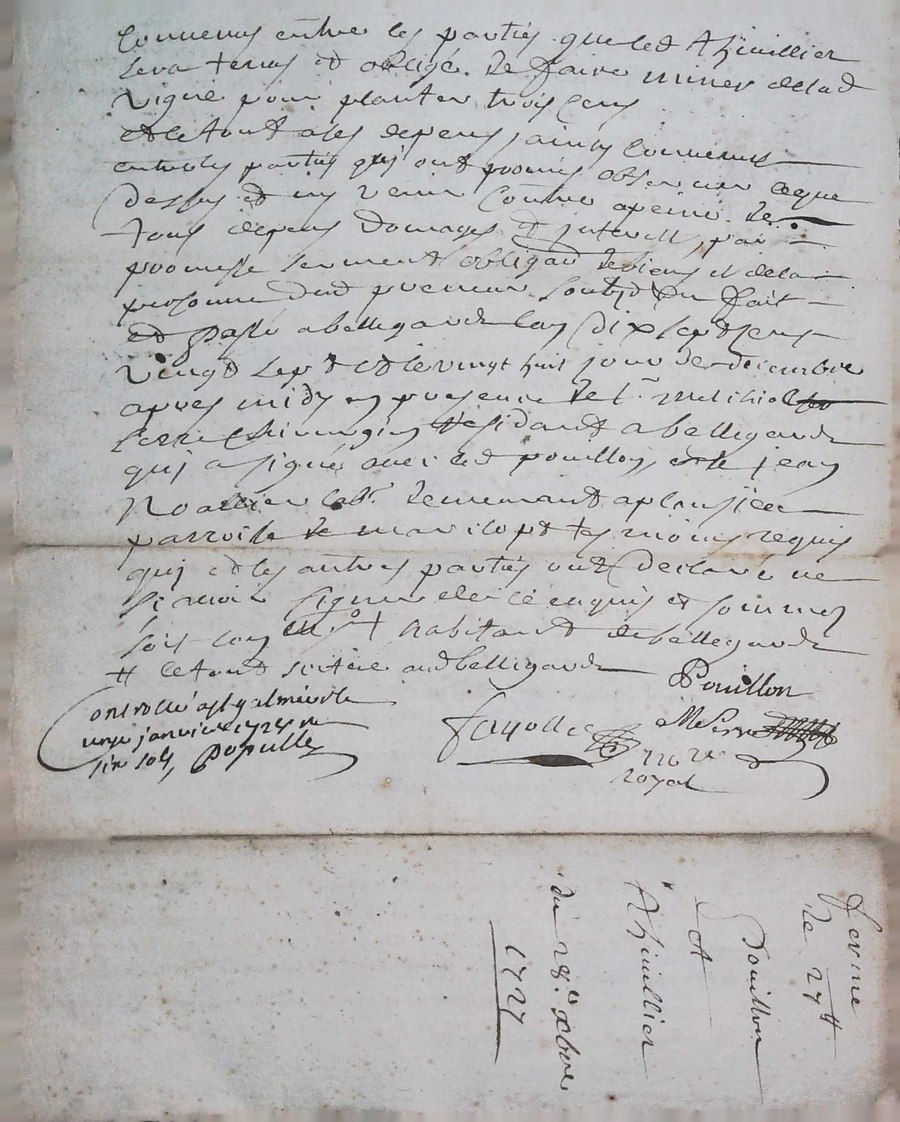 Convenus entre les parties que led Thivillier
sera tenus et obligé de faire miner de lad
vigne pour planter trois cens
et le tout a ses depens, ainsy convenus
entre les parties quj ont promis observer ceque
dessus et ny venir contre a peine de
tous depens domages et jnterest, par
promesse serment obligaon de biens et de la
personne dud preneur soubson fait
et passé a bellegarde lan dix sept cens
vingt sept et le vingt huit jour de decembre
apres midy en presence de Sr
Serre Chirurgien residant a bellegarde
quj a signé avec led pouillon, et de jean
labr. demeurant a
parroisse de tesmoins requis
quj et les autres parties ont declaré ne
scavoir signer de ce enquis et sommez
soit habitant de bellegarde
le tout scitué aud bellegarde
Pouillon
ontrollé a st galmier le
unze janvier 1728 r
six sols, Populle
Fayolle
M Serre
nore
royal
ferme
de 27tt
Pouillon
et
Thivillier
du 28e xbre
1727